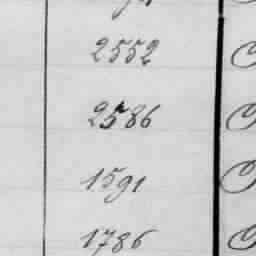 2552
2586
1591
1786